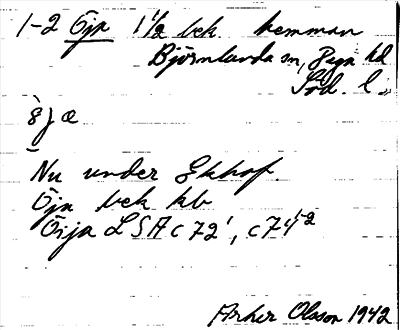 1-2 Öja 1 1/2 bek hemman
Björnlunda sn, Daga hd
Söd. l.
Nu under Ekhof.
Öja bek kb
Örja LSA C72', C74'-2
Arkiv Olsson 1942